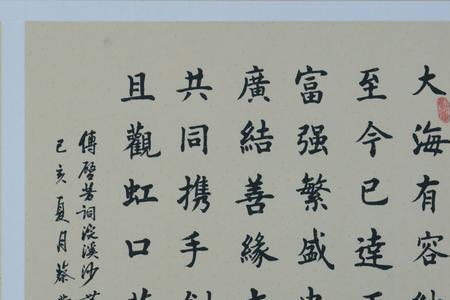 大海有容
至今已達
富强繁盛
廣結善緣
共同携手
且觀虹口
傅啓芳詞浣溪沙
己亥夏月蔡